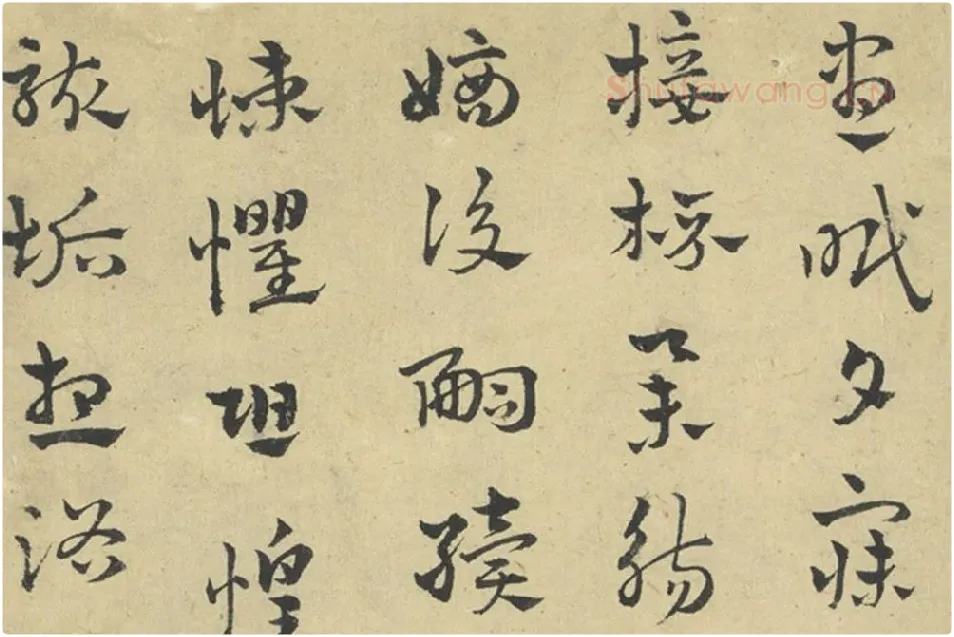 晝眠夕寐
接杯舉觴
嫡後嗣續
悚懼恐惶
骸垢想浴
Shufawang.cn